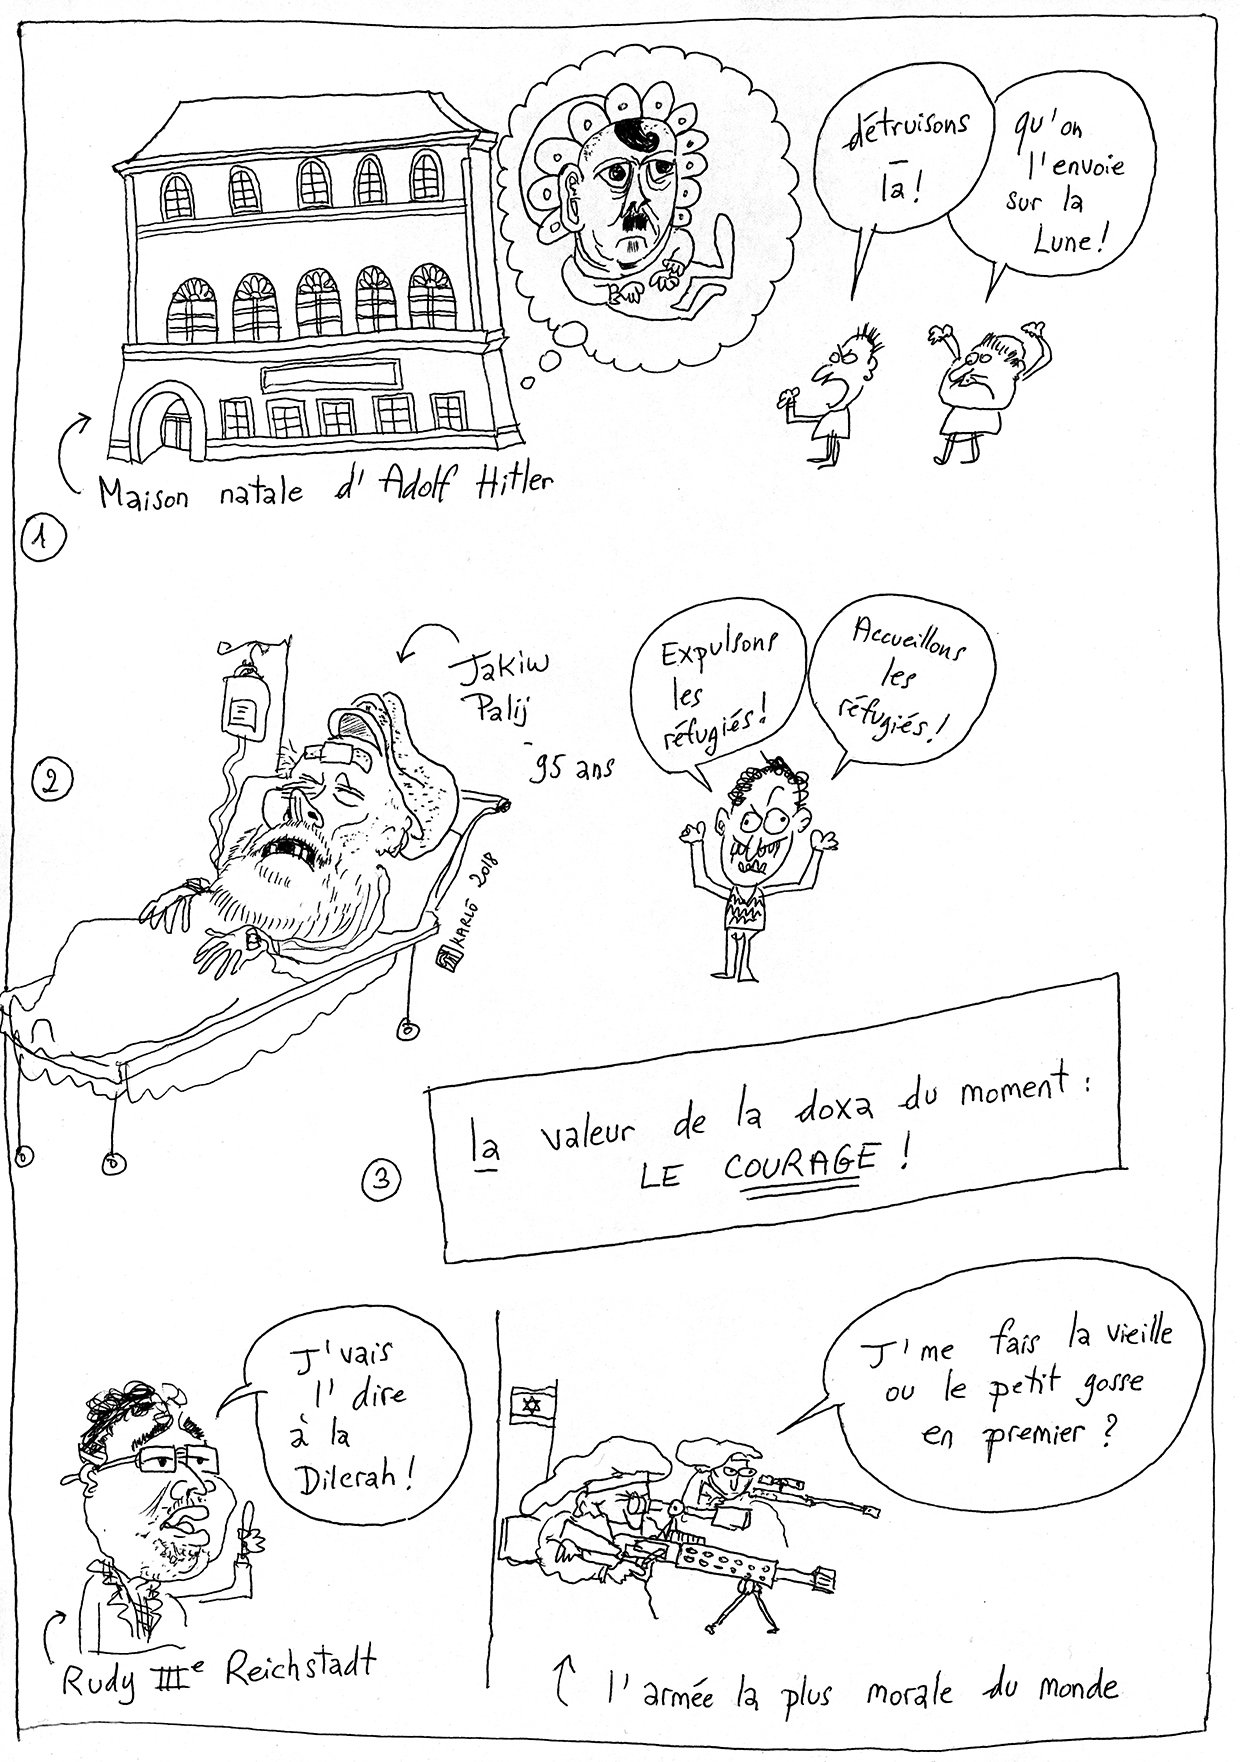 détruisons
la !
qu'on
l'envoie
sur la
Lune !
Maison natale d'Adolf Hitler
1
Jakiw
Palij
- 95 ans
Expulsons
les
réfugiés !
Accueillons
les
réfugiés !
2
KARLÖ 2018
la valeur de la doxa du moment :
LE COURAGE !
3
J'vais
l'dire
à la
Dilcrah !
Rudy IIIe Reichstadt
J'me fais la vieille
ou le petit gosse
en premier ?
l'armée la plus morale du monde